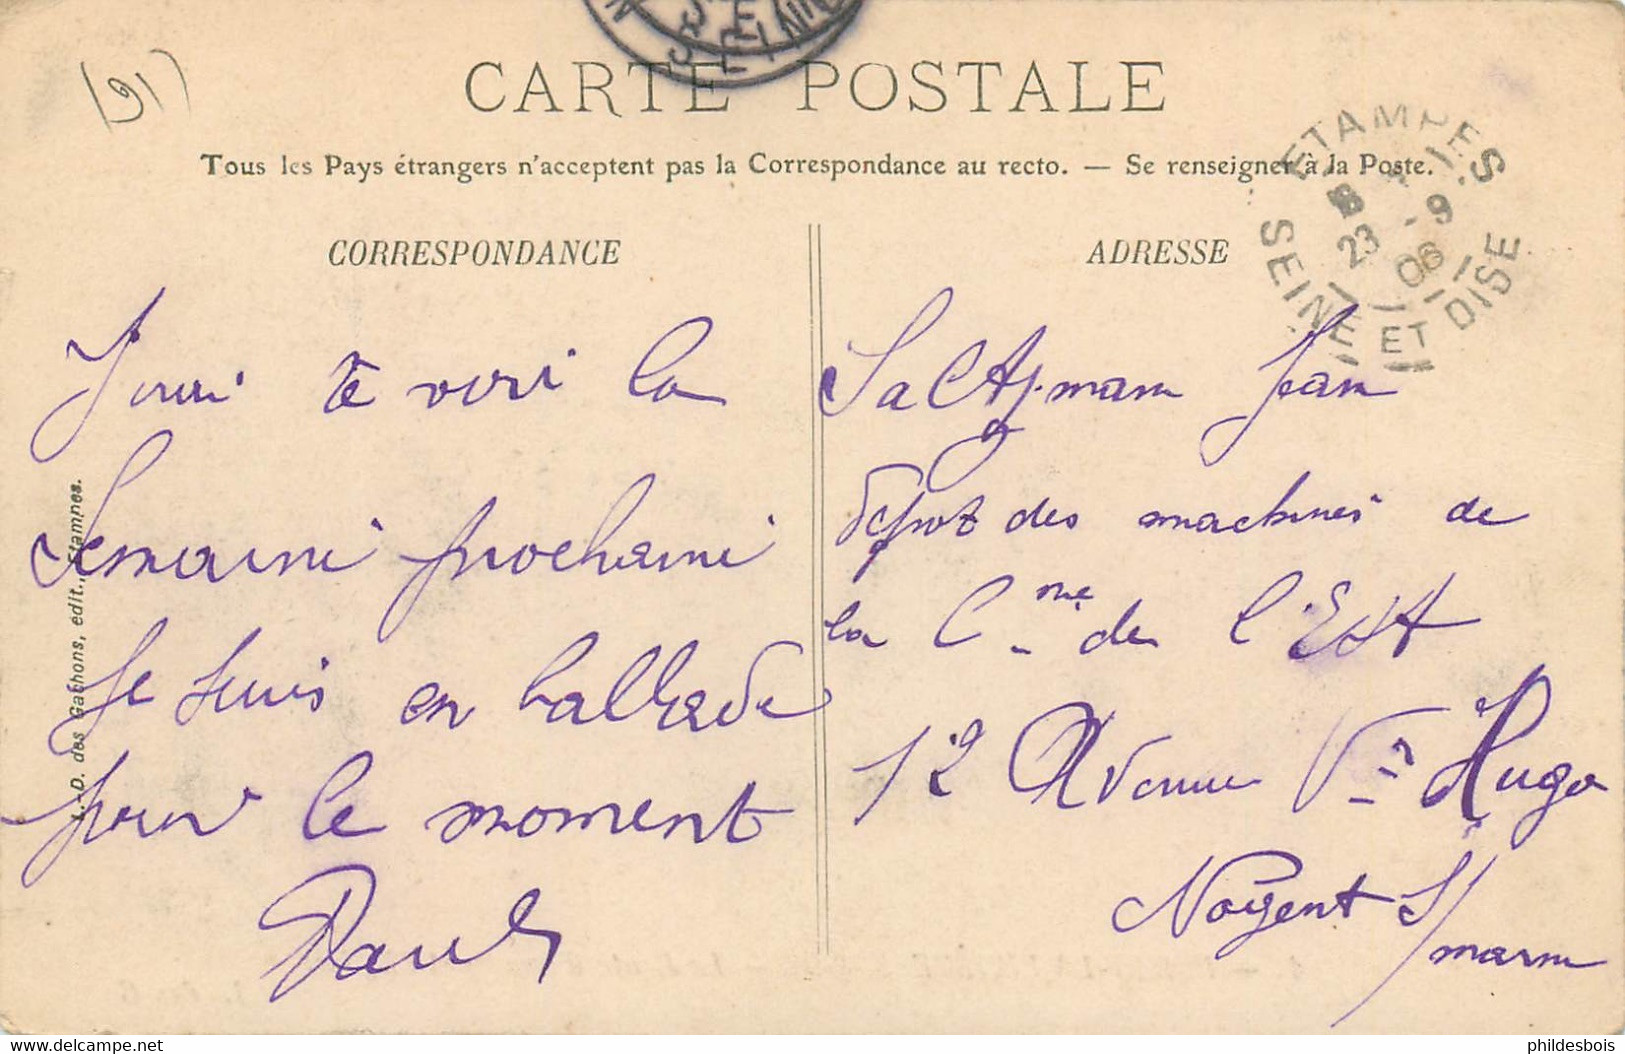 (91)
CARTE POSTALE
Tous les Pays étrangers n'acceptent pas la Correspondance au recto. — Se renseigner à la Poste.
ETAMPES
SEINE ET OISE
23 -9
06
CORRESPONDANCE
J'irai te voir la
Semaine prochaine
Je suis en ballade
pour le moment
Paul
L.-D. des Gachons, édit., Etampes.
ADRESSE
Jean
dépot des machines de
la Cme de l'Est
12 Avenue Vor Hugo
Nogent S/marne
delcampe.net
phildesbois